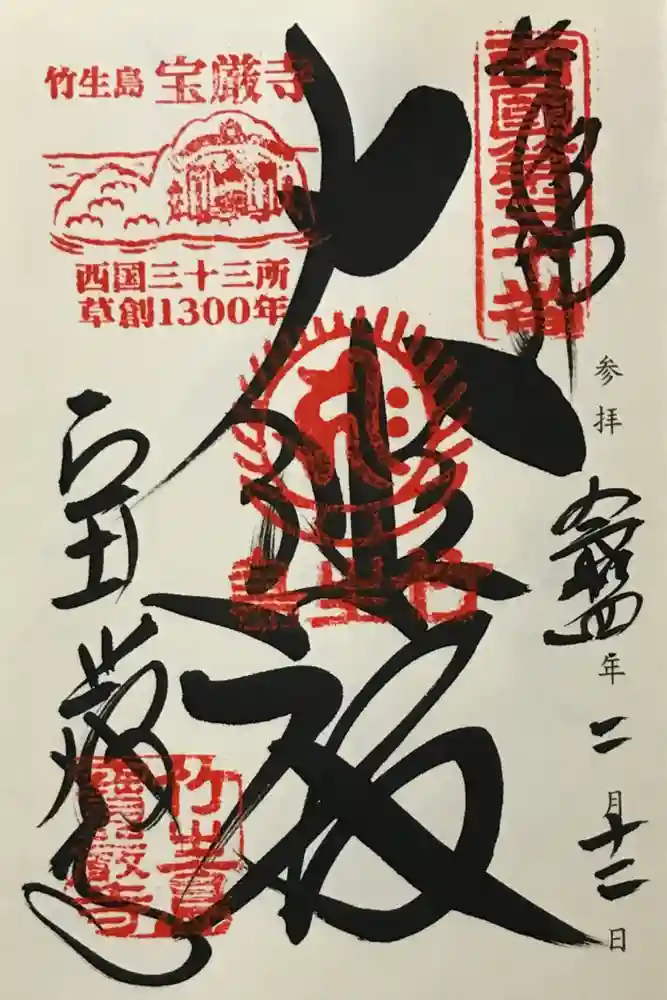 竹生島 宝厳寺
西国三十三所
草創1300年
西國第三十番
参拝 令和四年二月十二日
大悲殿
竹生島
宝厳寺
竹生島
寶厳寺